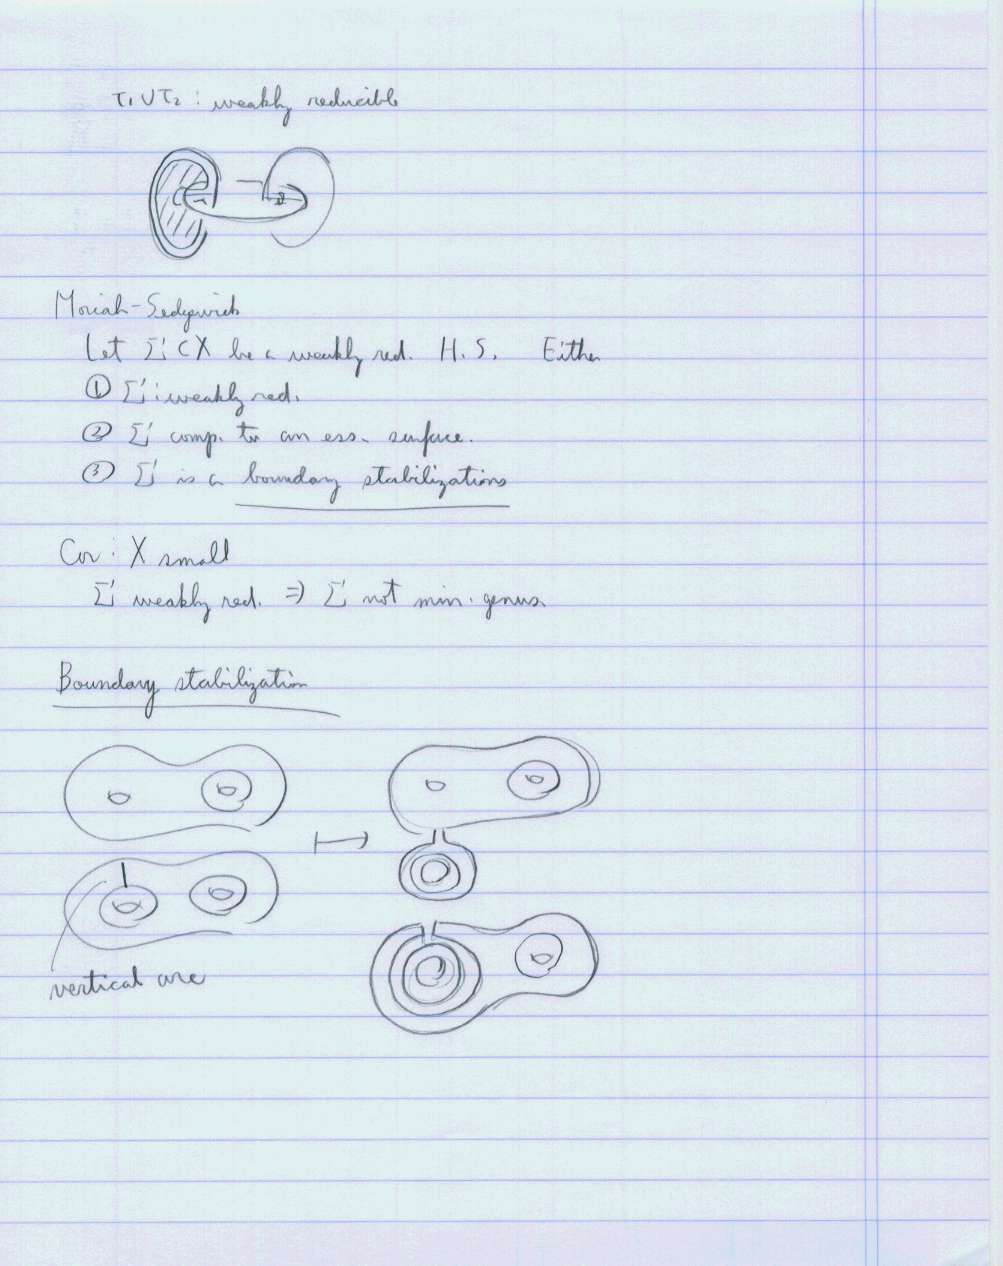 τ₁∪τ₂ : weakly reducible
Moriah-Sedgwick
Let Σ' ⊂ X be a weakly red. H.S. Either
① Σ' : weakly red.
② Σ' comp. to an ess. surface.
③ Σ' is a boundary stabilizations
Cor : X small
Σ' weakly red. ⇒ Σ' not min. genus.
Boundary stabilization
vertical arc